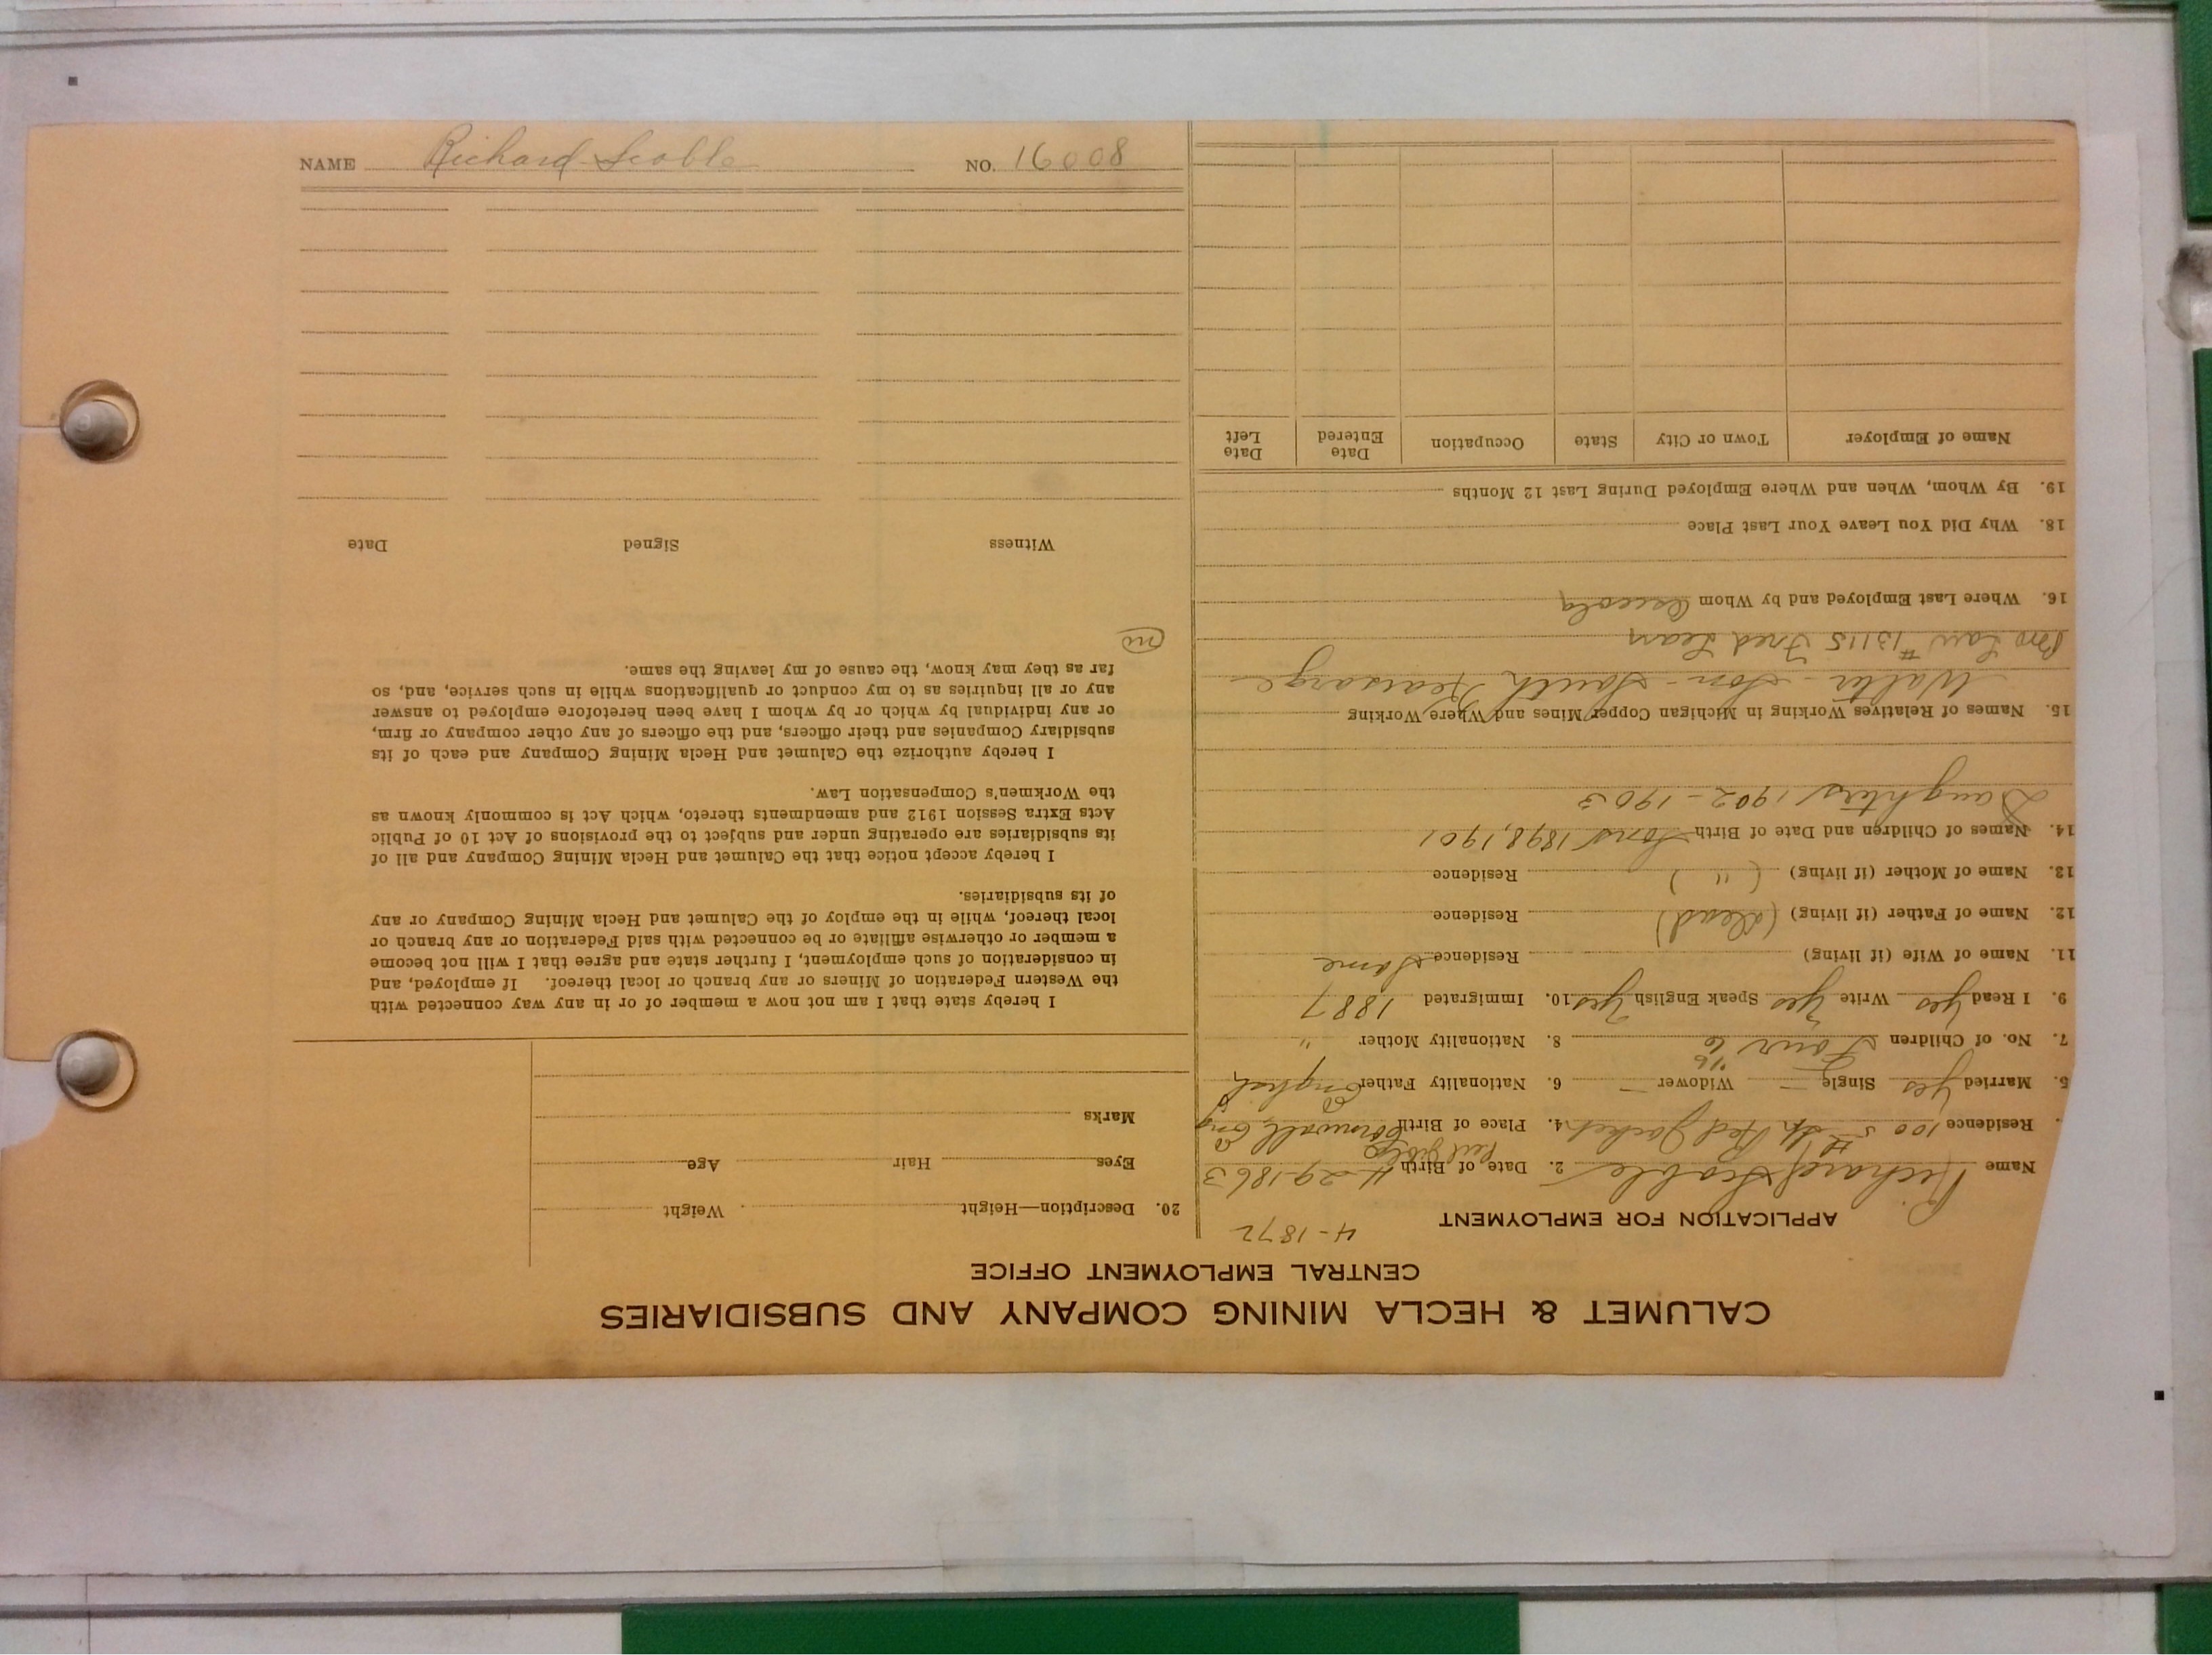 CALUMET & HECLA MINING COMPANY AND SUBSIDIARIES
CENTRAL EMPLOYMENT OFFICE
APPLICATION FOR EMPLOYMENT
4-1872
Name Richard Scoble 2. Date of Birth 4-29-1863
Residence 100 5th St Red Jacket 4. Place of Birth Cornwall Eng
5. Married Yes Single — Widower — 6. Nationality Father English
7. No. of Children Four 8. Nationality Mother "
9. I Read Yes Write Yes Speak English Yes 10. Immigrated 1887
11. Name of Wife (if living) Residence Same
12. Name of Father (if living) (dead) Residence
13. Name of Mother (if living) ( " ) Residence
14. Names of Children and Date of Birth Sons 1898, 1901
Daughters 1902 - 1903
15. Names of Relatives Working in Michigan Copper Mines and Where Working
Walter - Son - South Kearsarge
Bro Law #13115 Fred Lean
16. Where Last Employed and by Whom Osceola
18. Why Did You Leave Your Last Place
19. By Whom, When and Where Employed During Last 12 Months
Name of Employer Town or City State Occupation Date Entered Date Left
20. Description—Height Weight
Eyes Hair Age
Marks
I hereby state that I am not now a member of or in any way connected with
the Western Federation of Miners or any branch or local thereof. If employed, and
in consideration of such employment, I further state and agree that I will not become
a member or otherwise affiliate or be connected with said Federation or any branch or
local thereof, while in the employ of the Calumet and Hecla Mining Company or any
of its subsidiaries.
I hereby accept notice that the Calumet and Hecla Mining Company and all of
its subsidiaries are operating under and subject to the provisions of Act 10 of Public
Acts Extra Session 1912 and amendments thereto, which Act is commonly known as
the Workmen's Compensation Law.
I hereby authorize the Calumet and Hecla Mining Company and each of its
subsidiary Companies and their officers, and the officers of any other company or firm,
or any individual by which or by whom I have been heretofore employed to answer
any or all inquiries as to my conduct or qualifications while in such service, and, so
far as they may know, the cause of my leaving the same.
Witness Signed Date
NAME Richard Scoble NO. 16008